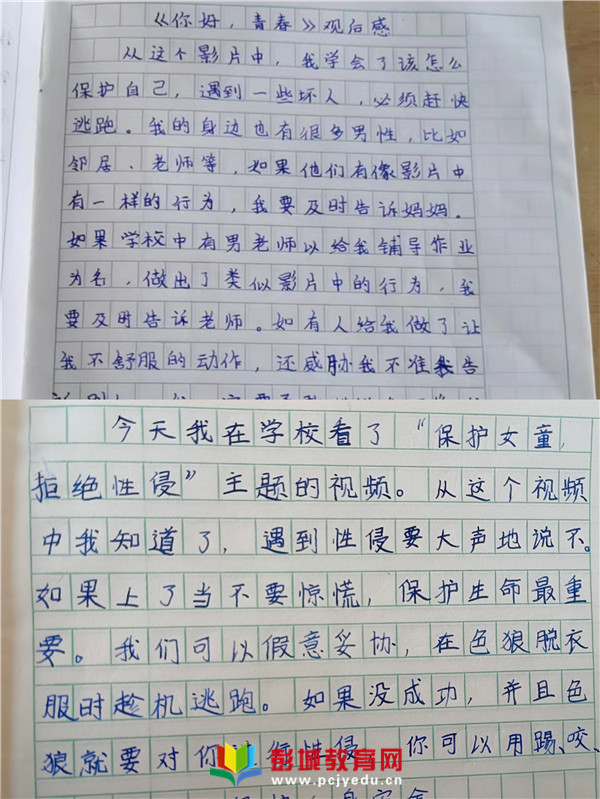 《你好，青春》观后感
从这个影片中，我学会了该怎么
保护自己，遇到一些坏人，必须赶快
逃跑。我的身边也有很多男性，比如
邻居、老师等，如果他们有像影片中
有一样的行为，我要及时告诉妈妈。
如果学校中有男老师以给我铺导作业
为名，做出了类似影片中的行为，我
要及时告诉老师。如有人给我做了让
我不舒服的动作，还威胁我不准我告
今天我在学校看了“保护女童，
拒绝性侵”主题的视频。从这个视频
中我知道了，遇到性侵要大声地说不。
如果上了当不要惊慌，保护生命最重
要。我们可以假意妥协，在色狼脱衣
服时趁机逃跑。如果没成功，并且色
狼就要对你 性侵 你可以用踢、咬、
彭城教育网
www.pcjyedu.cn